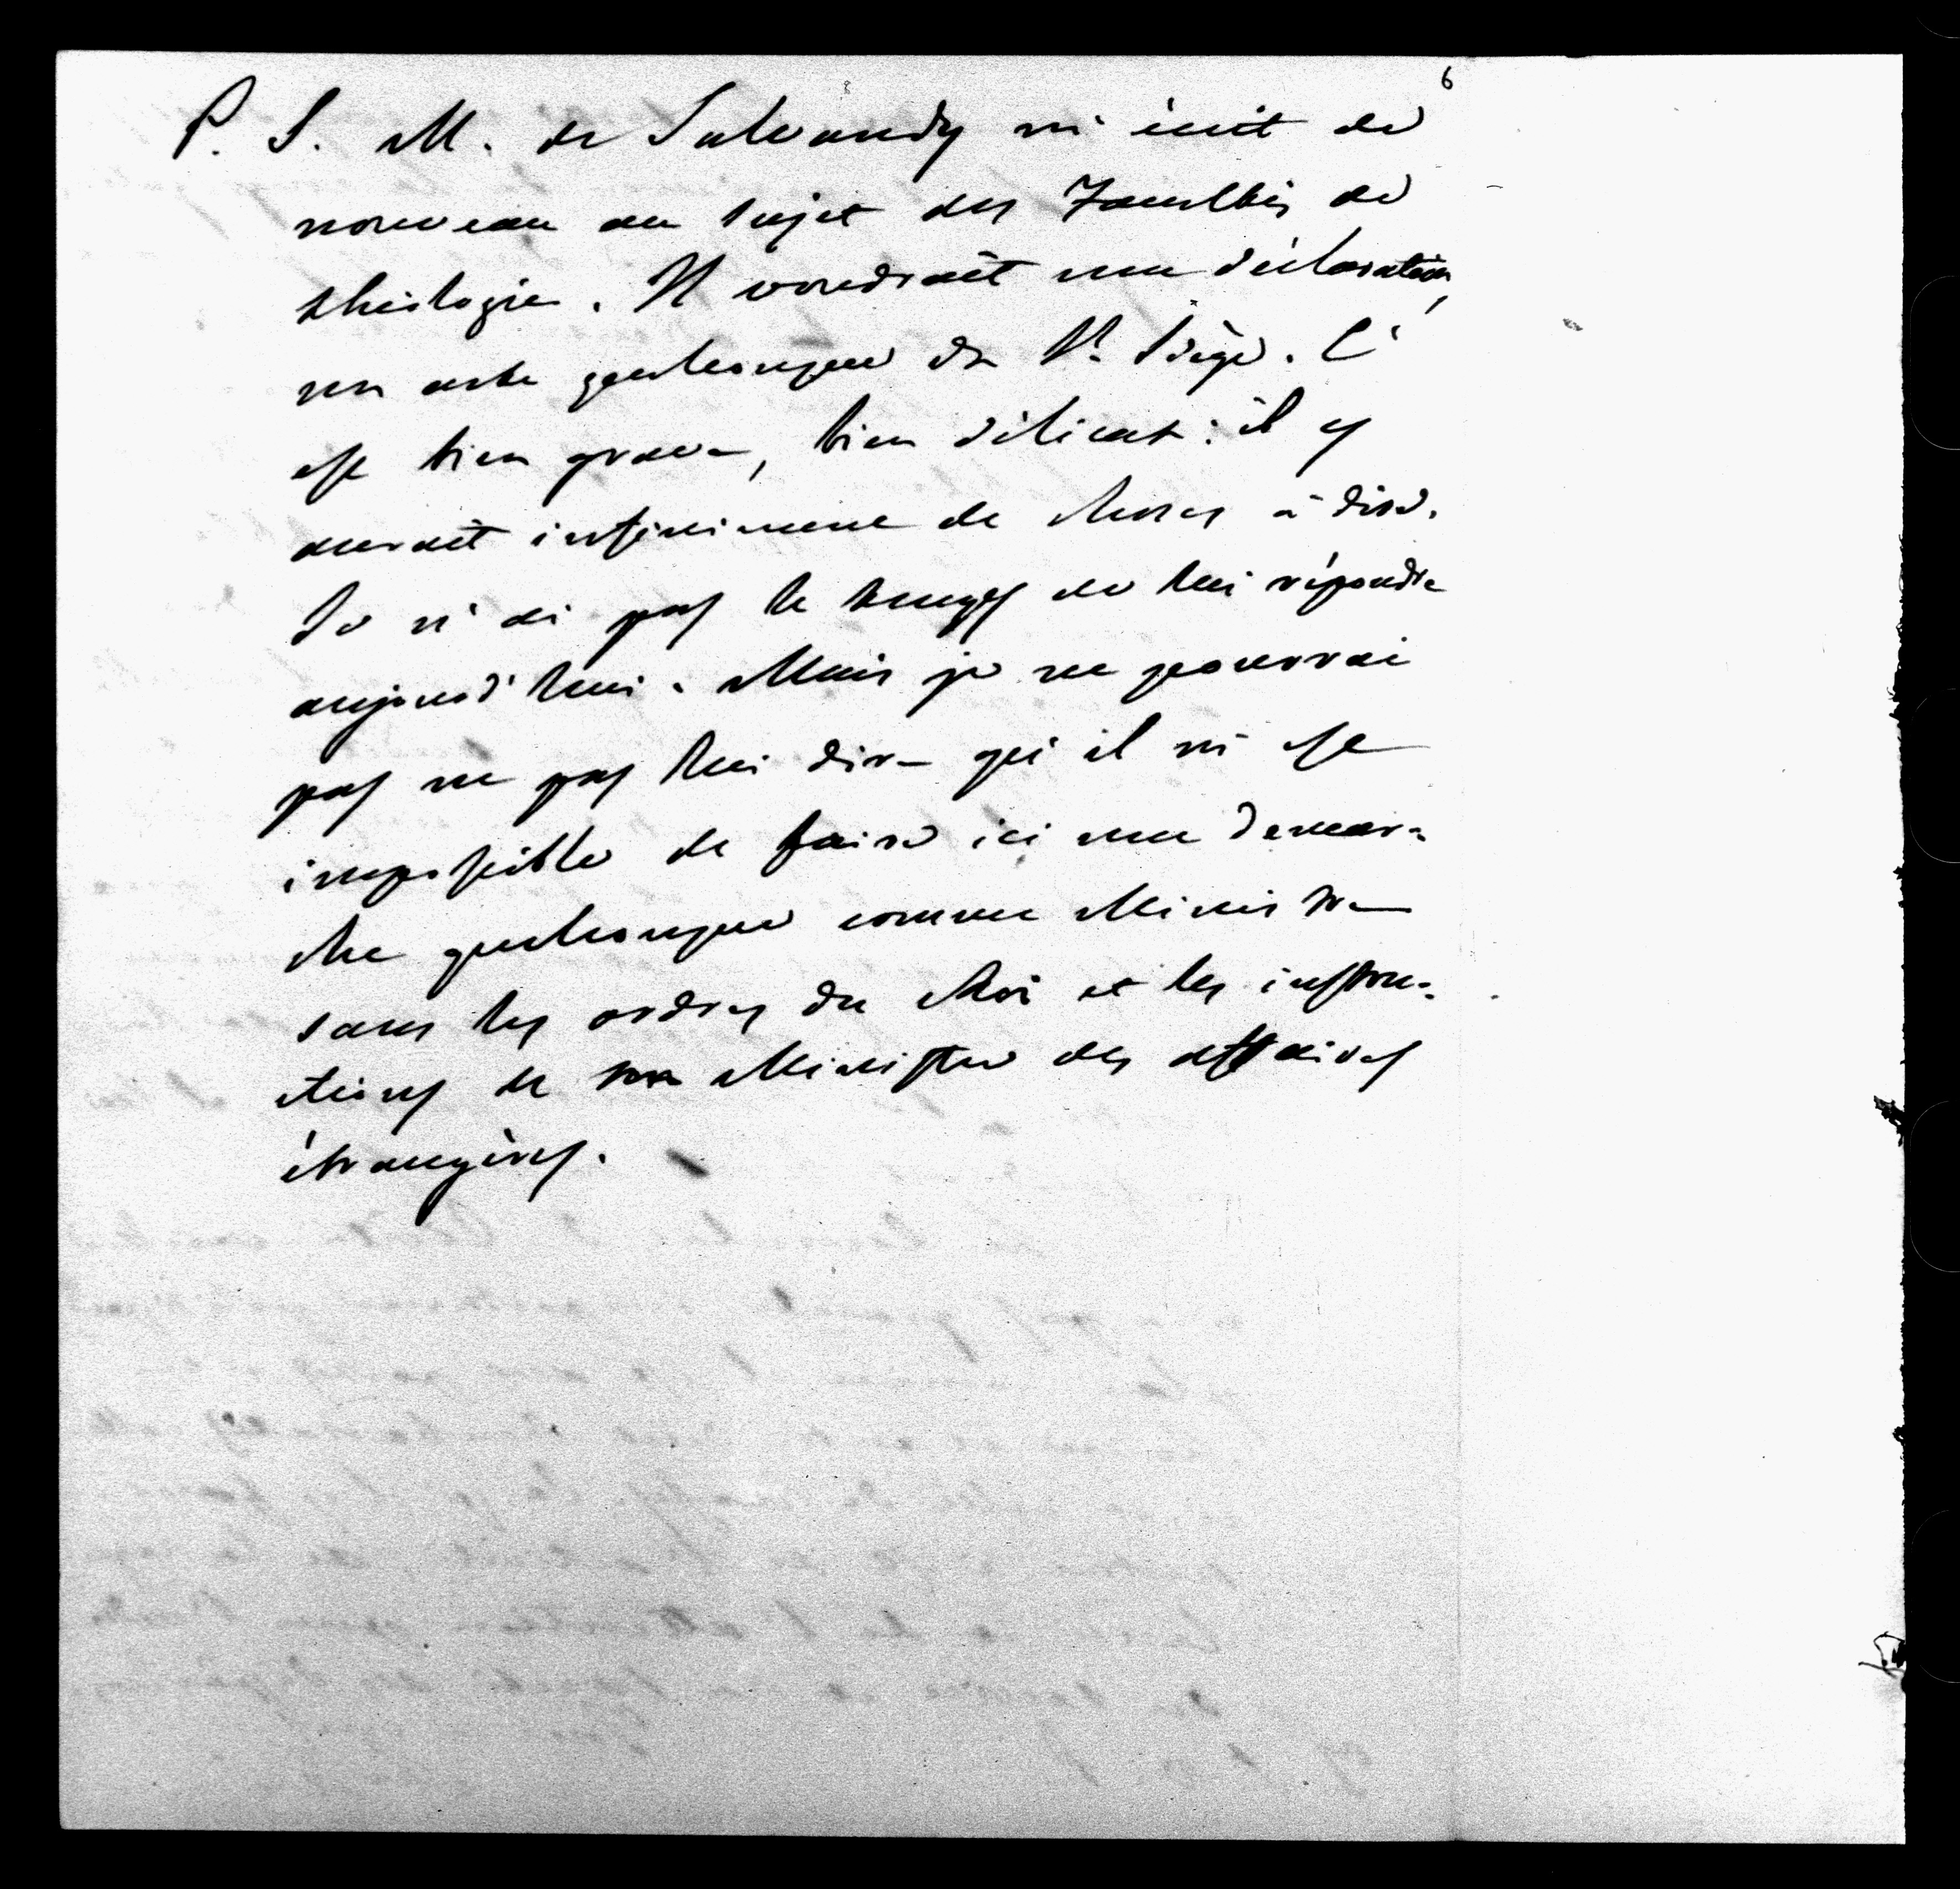 6
P. S. M. de Salvandy m'écrit de
nouveau au sujet des Facultés de
théologie. Il voudrait une déclaration,
un acte quelconque du St. Siège. C'
est bien grave, bien délicat : il y
aurait infiniment de choses à dire.
Je n'ai pas le temps de lui répondre
aujourd'hui. Mais je ne pourrai
pas ne pas lui dire qu'il m'est
impossible de faire ici une démar-
che quelconque comme Ministre
sans les ordres du Roi et les instru-
ctions de son Ministre des affaires
étrangères.